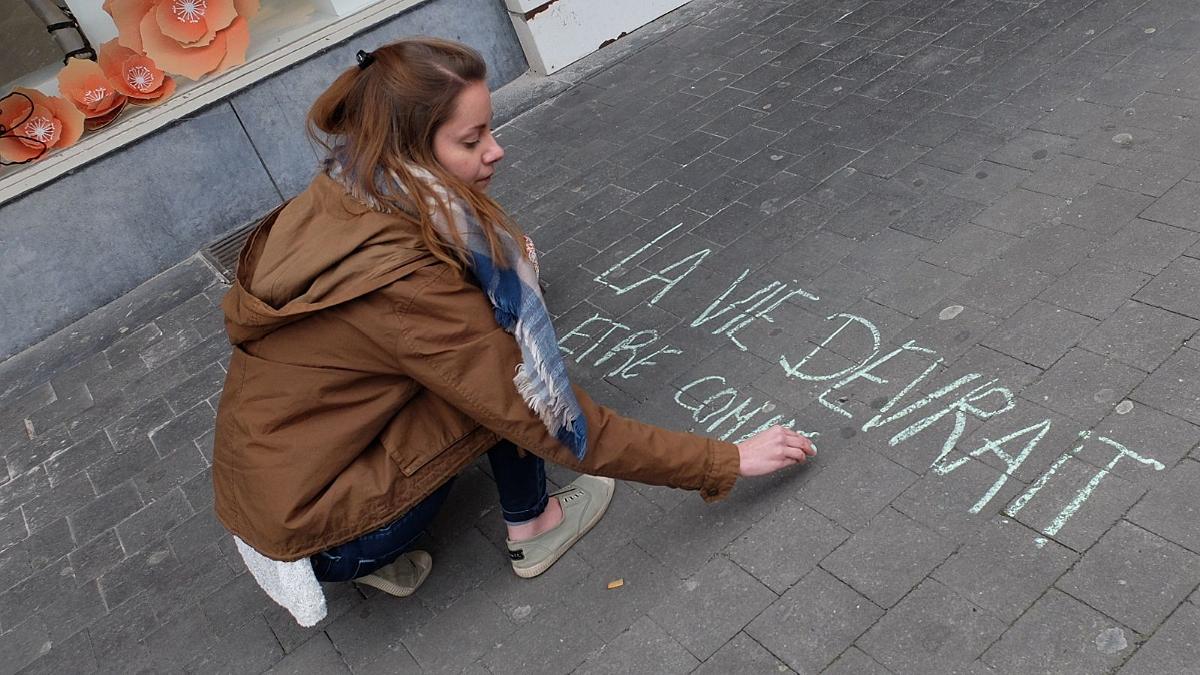 LA VIE DEVRAIT
ETRE COMME